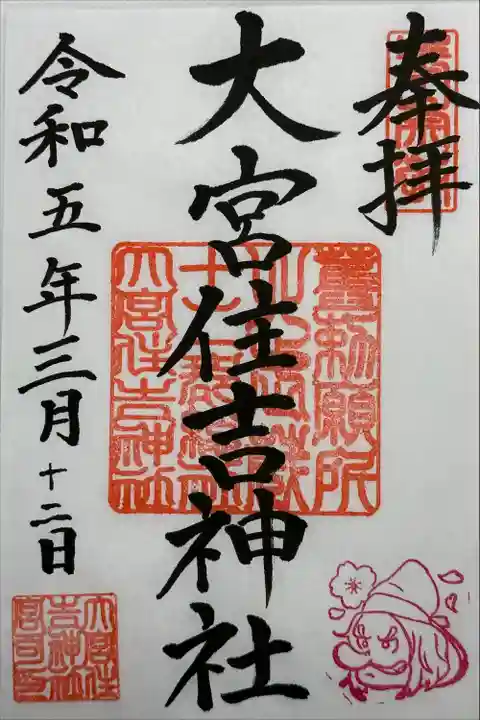 奉拝
大宮住吉神社
令和五年三月十二日
舊勅願所
大宮住吉神社
大宮住
吉神社
宮司印